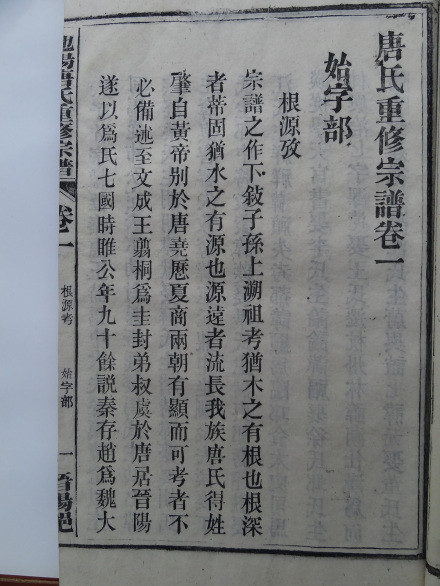 唐氏重修宗譜卷一
始字部
根源攷
宗譜之作下敍子孫上溯祖考猶木之有根也根深
者蒂固猶水之有源也源遠者流長我族唐氏得姓
肇自黃帝別於唐堯歷夏商兩朝有顯而可考者不
必備述至文成王翦桐爲圭封弟叔虞於唐居晉陽
遂以爲氏七國時睢公年九十餘説秦存趙爲魏大
池陽唐氏重修宗譜
卷一
根源考
始字部
一
晉陽